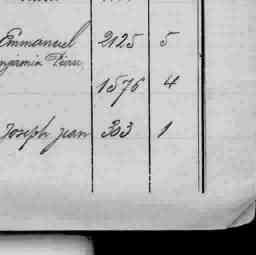 Emmanuel 2125 5
1576 4
Joseph Jean 303 1